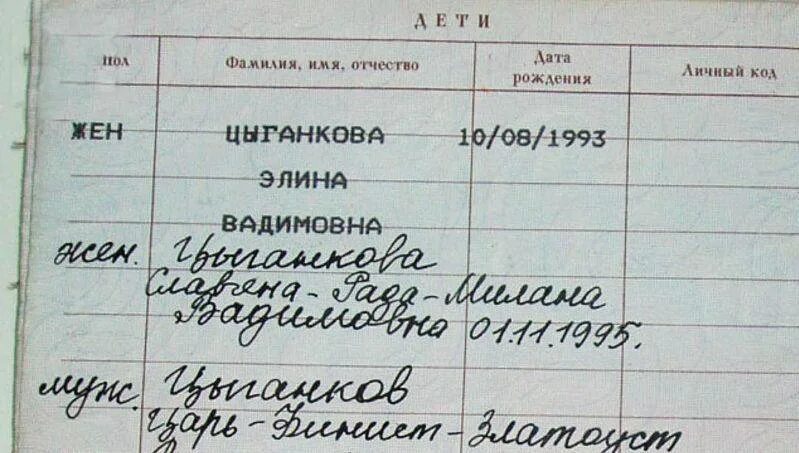 ДЕТИ
пол Фамилия, имя, отчество Дата рождения Личный код
ЖЕН ЦЫГАНКОВА 10/08/1993
ЭЛИНА
ВАДИМОВНА
жен. Цыганкова
Славяна-Рада-Милана
Вадимовна 01.11.1995.
муж. Цыганков
Царь-Финист-Златоуст